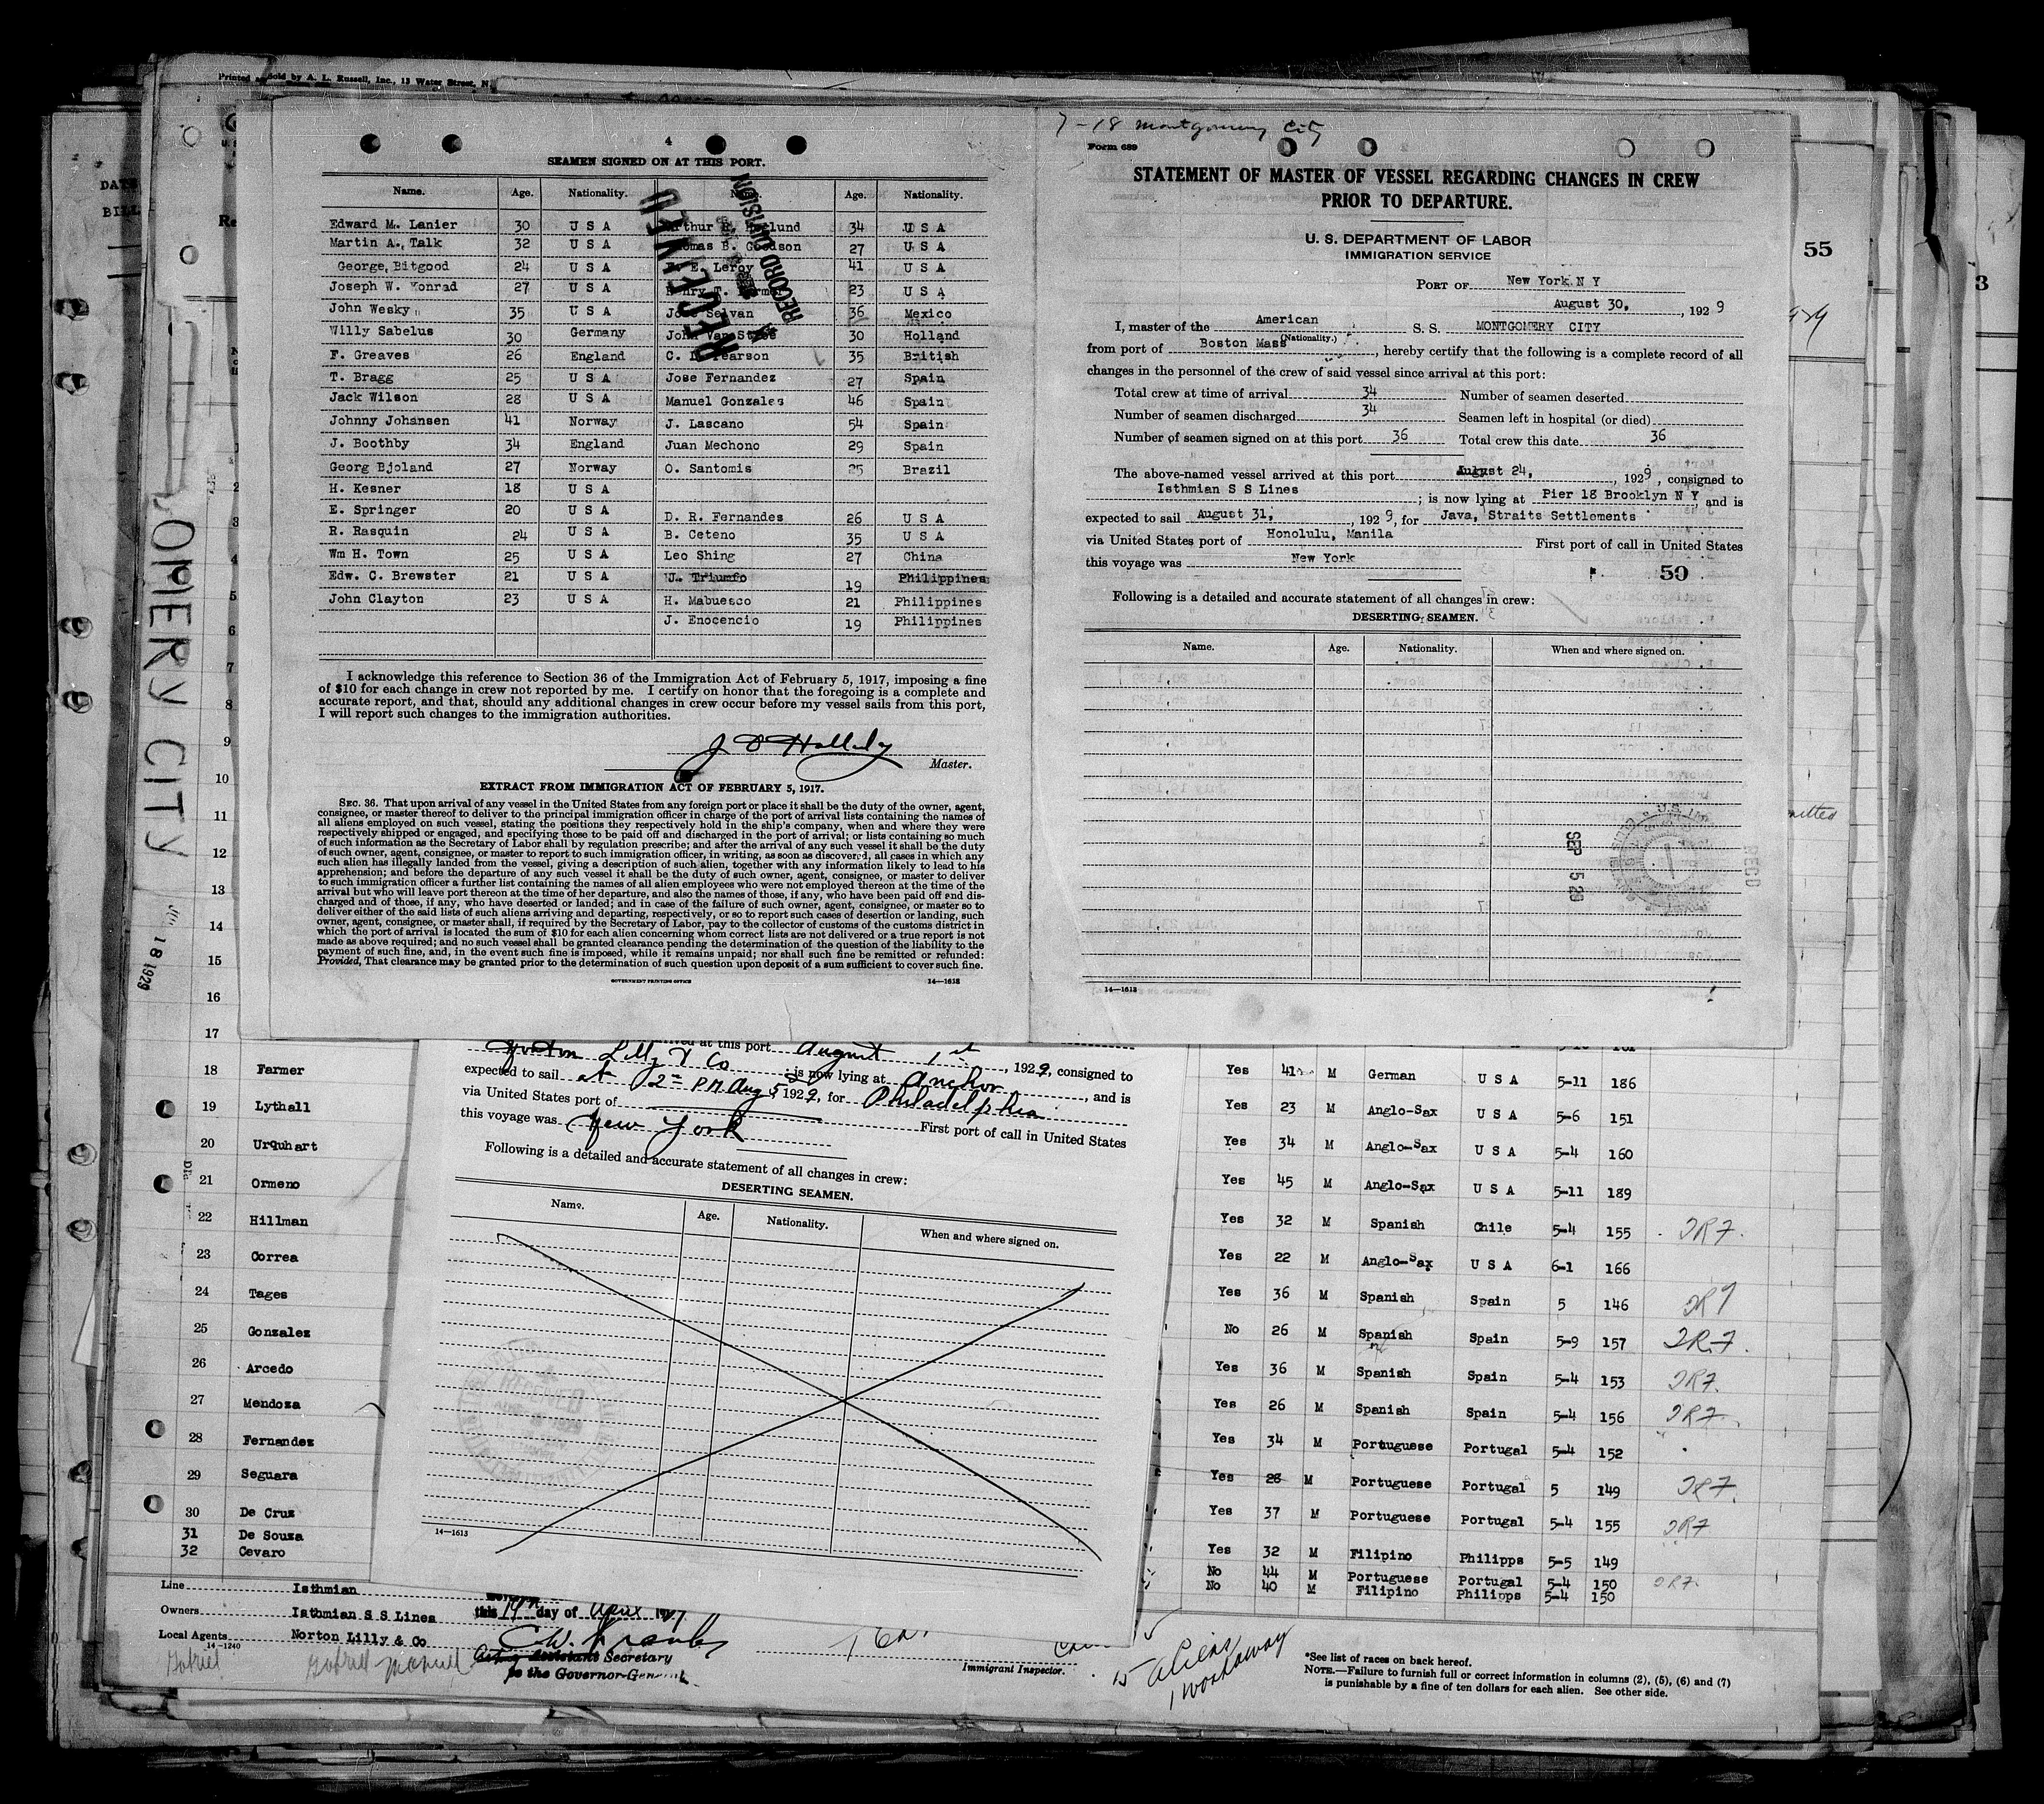 Printed and sold by A. L. Russell, Inc., 13 Water Street, N
4
SEAMEN SIGNED ON AT THIS PORT.
Name. Age. Nationality. Age. Nationality.
Edward M. Lanier 30 U S A 34 U S A
Martin A. Talk 32 U S A B. Goodson 27 U S A
George, Bitgood 24 U S A E. Leroy 41 U S A
Joseph W. Konrad 27 U S A T. 23 U S A
John Wesky 35 U S A Jose Selvan 36 Mexico
Willy Sabelus 30 Germany John Van 30 Holland
F. Greaves 26 England C. Pearson 35 British
T. Bragg 25 U S A Jose Fernandez 27 Spain
Jack Wilson 28 U S A Manuel Gonzales 46 Spain
Johnny Johansen 41 Norway J. Lascano 54 Spain
J. Boothby 34 England Juan Mechono 29 Spain
Georg Bjoland 27 Norway O. Santomis 25 Brazil
H. Kesner 18 U S A
E. Springer 20 U S A D. R. Fernandes 26 U S A
R. Rasquin 24 U S A B. Ceteno 35 U S A
Wm H. Town 25 U S A Leo Shing 27 China
Edw. C. Brewster 21 U S A J. Triumfo 19 Philippines
John Clayton 23 U S A H. Mabuesco 21 Philippines
J. Enocencio 19 Philippines
RECEIVED
RECORD DIVISION
I acknowledge this reference to Section 36 of the Immigration Act of February 5, 1917, imposing a fine
of $10 for each change in crew not reported by me. I certify on honor that the foregoing is a complete and
accurate report, and that, should any additional changes in crew occur before my vessel sails from this port,
I will report such changes to the immigration authorities.
Master.
EXTRACT FROM IMMIGRATION ACT OF FEBRUARY 5, 1917.
SEC. 36. That upon arrival of any vessel in the United States from any foreign port or place it shall be the duty of the owner, agent,
consignee, or master thereof to deliver to the principal immigration officer in charge of the port of arrival lists containing the names of
all aliens employed on such vessel, stating the positions they respectively hold in the ship's company, when and where they were
respectively shipped or engaged, and specifying those to be paid off and discharged in the port of arrival; or lists containing so much
of such information as the Secretary of Labor shall by regulation prescribe; and after the arrival of any such vessel it shall be the duty
of such owner, agent, consignee, or master to report to such immigration officer, in writing, as soon as discovered, all cases in which any
such alien has illegally landed from the vessel, giving a description of such alien, together with any information likely to lead to his
apprehension; and before the departure of any such vessel it shall be the duty of such owner, agent, consignee, or master to deliver
to such immigration officer a further list containing the names of all alien employees who were not employed thereon at the time of the
arrival but who will leave port thereon at the time of her departure, and also the names of those, if any, who have been paid off and dis-
charged and of those, if any, who have deserted or landed; and in case of the failure of such owner, agent, consignee, or master so to
deliver either of the said lists of such aliens arriving and departing, respectively, or so to report such cases of desertion or landing, such
owner, agent, consignee, or master shall, if required by the Secretary of Labor, pay to the collector of customs of the customs district in
which the port of arrival is located the sum of $10 for each alien concerning whom correct lists are not delivered or a true report is not
made as above required; and no such vessel shall be granted clearance pending the determination of the question of the liability to the
payment of such fine, and, in the event such fine is imposed, while it remains unpaid; nor shall such fine be remitted or refunded:
Provided, That clearance may be granted prior to the determination of such question upon deposit of a sum sufficient to cover such fine.
GOVERNMENT PRINTING OFFICE 14—1613
7-18 Montgomery City
Form 689
STATEMENT OF MASTER OF VESSEL REGARDING CHANGES IN CREW
PRIOR TO DEPARTURE.
U. S. DEPARTMENT OF LABOR
IMMIGRATION SERVICE
PORT OF New York N Y
August 30, , 1929
I, master of the American S. S. MONTGOMERY CITY
(Nationality.)
from port of Boston Mass , hereby certify that the following is a complete record of all
changes in the personnel of the crew of said vessel since arrival at this port:
Total crew at time of arrival 34 Number of seamen deserted
Number of seamen discharged 34 Seamen left in hospital (or died)
Number of seamen signed on at this port 36 Total crew this date 36
The above-named vessel arrived at this port August 24, , 1929, consigned to
Isthmian S S Lines ; is now lying at Pier 18 Brooklyn N Y, and is
expected to sail August 31, , 1929, for Java, Straits Settlements
via United States port of Honolulu, Manila First port of call in United States
this voyage was New York
50
Following is a detailed and accurate statement of all changes in crew:
DESERTING SEAMEN.
Name. Age. Nationality. When and where signed on.
SEP 5 29
RECD
14—1613
55
3
DATE
BILL
OMERY CITY
18 1929
1
2
3
4
5
6
7
8
9
10
11
12
13
14
15
16
17
at this port August 1st , 1929, consigned to
Norton Lilly & Co is now lying at Anchor , and is
expected to sail at 2 P.M. Aug 5 1929, for Philadelphia
via United States port of First port of call in United States
this voyage was New York
Following is a detailed and accurate statement of all changes in crew:
DESERTING SEAMEN.
Name. Age. Nationality. When and where signed on.
RECEIVED
14—1613
18 Farmer Yes 41 M German U S A 5-11 186
19 Lythall Yes 23 M Anglo-Sax U S A 5-6 151
20 Urquhart Yes 34 M Anglo-Sax U S A 5-4 160
21 Ormeno Yes 45 M Anglo-Sax U S A 5-11 189
22 Hillman Yes 32 M Spanish Chile 5-4 155
23 Correa Yes 22 M Anglo-Sax U S A 6-1 166
24 Tages Yes 36 M Spanish Spain 5 146
25 Gonzalez No 26 M Spanish Spain 5-9 157
26 Arcedo Yes 36 M Spanish Spain 5-4 153
27 Mendoza Yes 26 M Spanish Spain 5-4 156
28 Fernandez Yes 34 M Portuguese Portugal 5-4 152
29 Seguara Yes 28 M Portuguese Portugal 5 149
30 De Cruz Yes 37 M Portuguese Portugal 5-4 155
31 De Souza Yes 32 M Filipino Philipps 5-5 149
32 Cevaro No 44 M Portuguese Portugal 5-4 150
No 40 M Filipino Philipps 5-4 150
Line Isthmian
Owners Isthmian S S Lines
Local Agents Norton Lilly & Co
14-1240
this 19th day of April
Acting Assistant Secretary
to the Governor-General
Immigrant Inspector.
15 aliens
1 workaway
*See list of races on back hereof.
NOTE.—Failure to furnish full or correct information in columns (2), (5), (6) and (7)
is punishable by a fine of ten dollars for each alien. See other side.